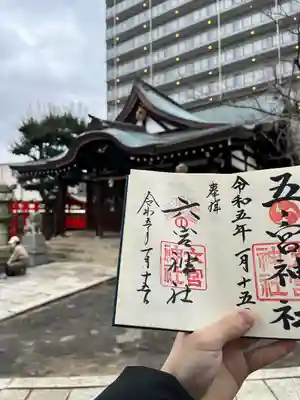 五宮神社
令和五年一月十五
奉拝
六宮神社
令和五年一月十五日